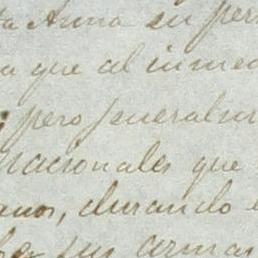 ta Anna su per
a que al inme
pero generalm
nacionales que
anos, durando
sus armas